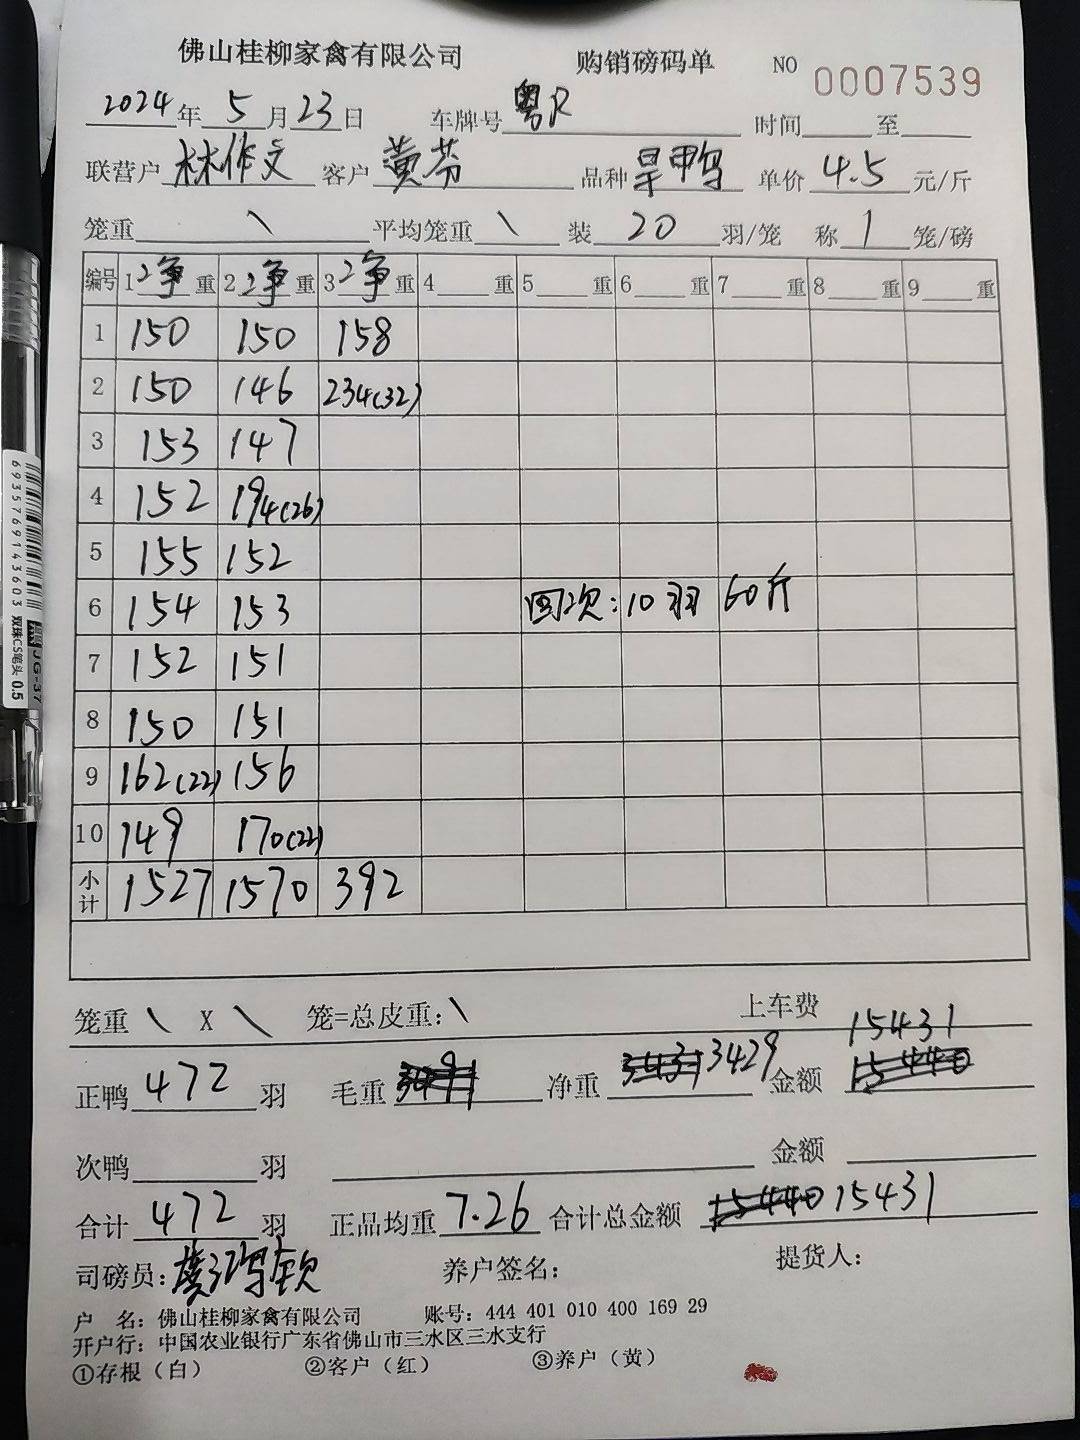 佛山桂柳家禽有限公司 购销磅码单 NO 0007539
2024年5月23日 车牌号 粤R 时间 至
联营户 林作文 客户 黄芬 品种 旱鸭 单价 4.5 元/斤
笼重 \ 平均笼重 \ 装 20 羽/笼 称 1 笼/磅
编号 1 净 重 2 净 重 3 净 重 4 重 5 重 6 重 7 重 8 重 9 重
1 150 150 158
2 150 146 234(32)
3 153 147
4 152 194(26)
5 155 152
6 154 153 回次:10羽 60斤
7 152 151
8 150 151
9 162(22) 156
10 149 170(22)
小计 1527 1570 392
笼重 \ X \ 笼=总皮重:\ 上车费
15431
正鸭 472 羽 毛重 净重 3431 3429 金额 15440
次鸭 羽 金额
合计 472 羽 正品均重 7.26 合计总金额 15440 15431
司磅员: 养户签名: 提货人:
户 名:佛山桂柳家禽有限公司 账号:444 401 010 400 169 29
开户行:中国农业银行广东省佛山市三水区三水支行
①存根(白) ②客户(红) ③养户(黄)
6935769143603 双珠CS笔头 0.5 JG-37